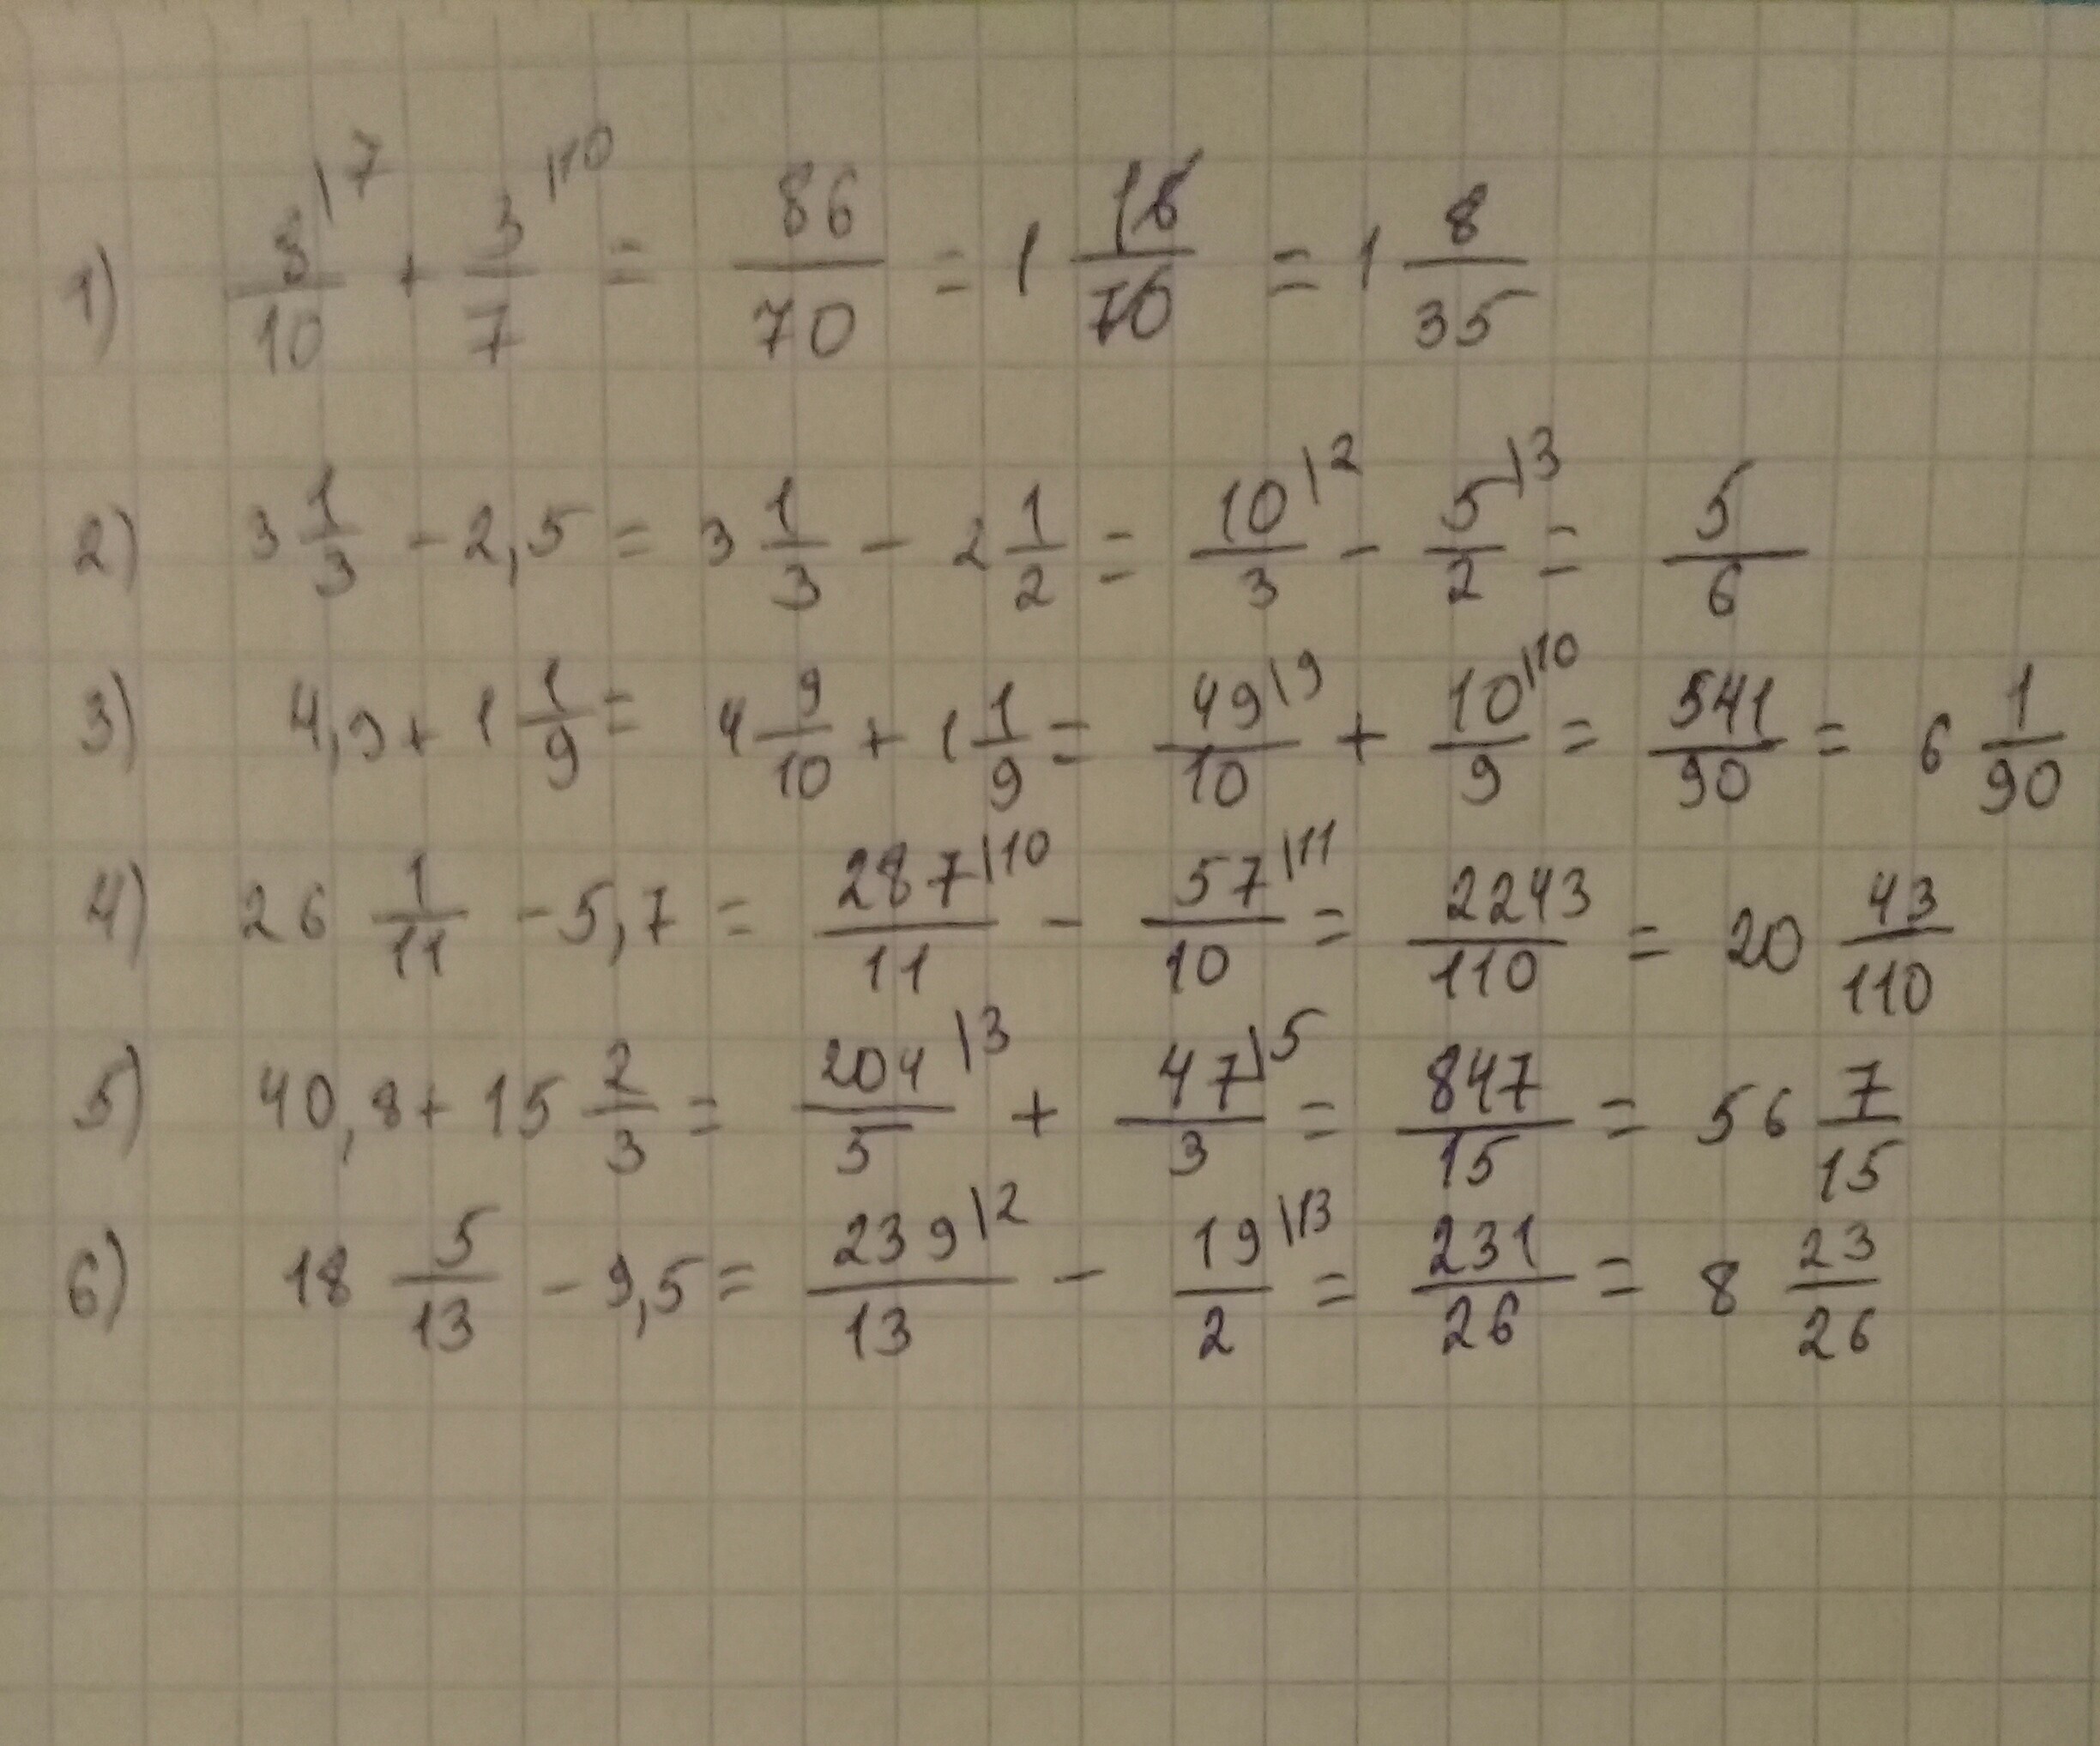 1) 8/10 |7 + 3/7 |10 = 86/70 = 1 16/70 = 1 8/35
2) 3 1/3 - 2,5 = 3 1/3 - 2 1/2 = 10/3 |2 - 5/2 |3 = 5/6
3) 4,9 + 1 1/9 = 4 9/10 + 1 1/9 = 49/10 |9 + 10/9 |10 = 541/90 = 6 1/90
4) 26 1/11 - 5,7 = 287/11 |10 - 57/10 |11 = 2243/110 = 20 43/110
5) 40,8 + 15 2/3 = 204/5 |3 + 47/3 |5 = 847/15 = 56 7/15
6) 18 5/13 - 9,5 = 239/13 |2 - 19/2 |13 = 231/26 = 8 23/26